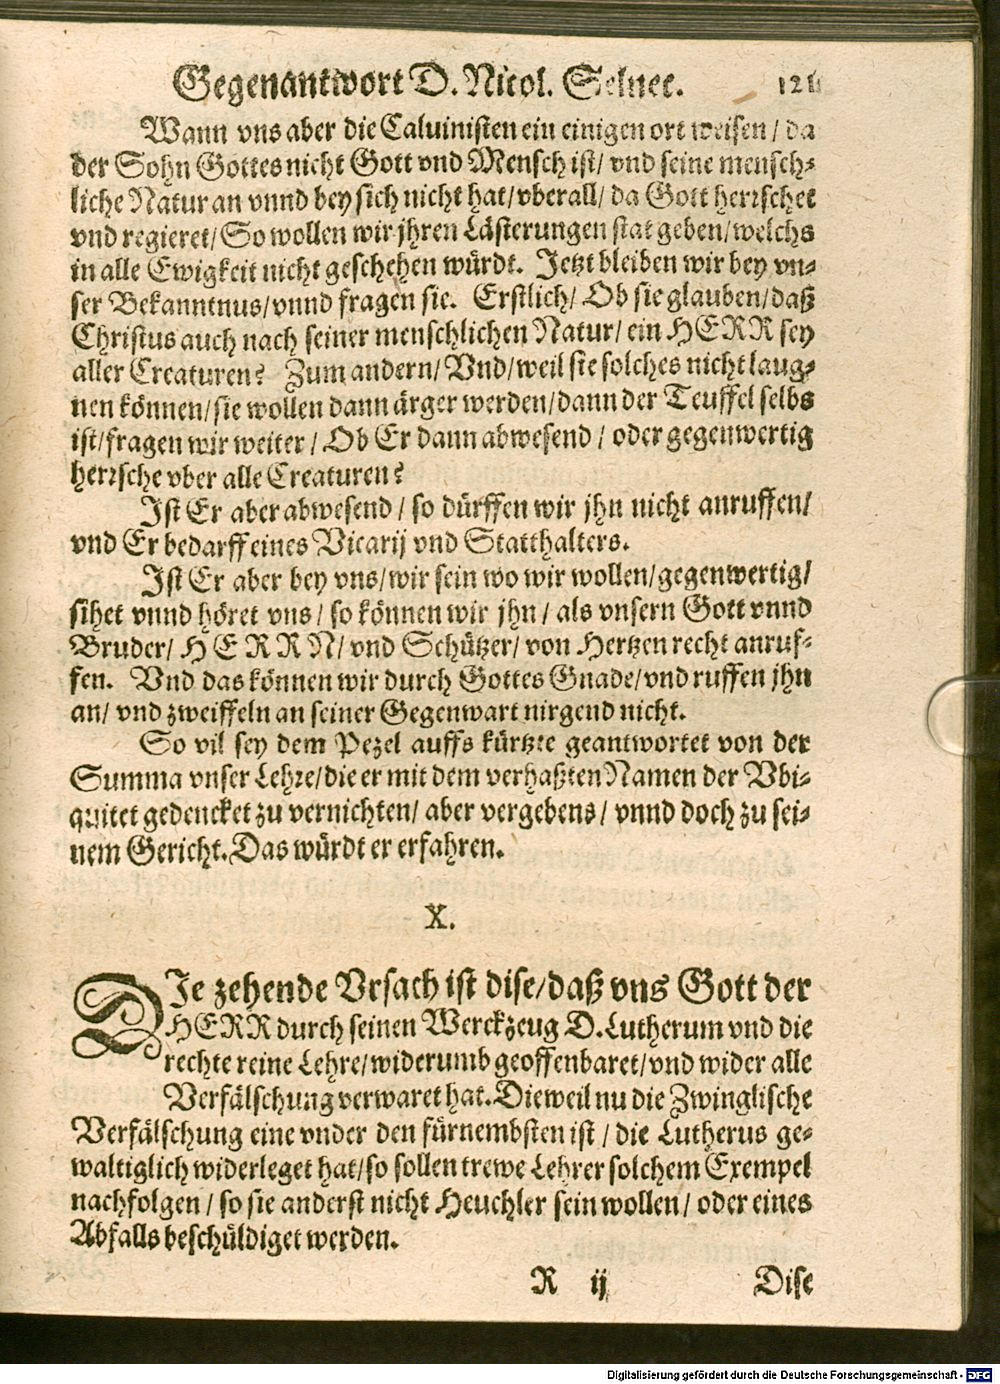 Gegenantwort D. Nicol. Selnec. 121
Wann vns aber die Caluinisten ein einigen ort weisen / da
der Sohn Gottes nicht Gott vnd Mensch ist/ vnd seine mensch-
liche Natur an vnnd bey sich nicht hat/ vberall/ da Gott herrschet
vnd regieret/ So wollen wir jhren Lästerungen stat geben/ welchs
in alle Ewigkeit nicht geschehen würdt. Jetzt bleiben wir bey vn-
ser Bekanntnus/ vnnd fragen sie. Erstlich/ Ob sie glauben/ daß
Christus auch nach seiner menschlichen Natur/ ein HERR sey
aller Creaturen? Zum andern/ Vnd/ weil sie solches nicht laug-
nen können/ sie wollen dann ärger werden/ dann der Teuffel selbs
ist/ fragen wir weiter / Ob Er dann abwesend / oder gegenwertig
herrsche vber alle Creaturen?
Ist Er aber abwesend / so dürffen wir jhn nicht anruffen/
vnd Er bedarff eines Vicarij vnd Statthalters.
Ist Er aber bey vns/ wir sein wo wir wollen/ gegenwertig/
sihet vnnd höret vns / so können wir jhn / als vnsern Gott vnnd
Bruder/ HERRN/ vnd Schützer/ von Hertzen recht anruf-
fen. Vnd das können wir durch Gottes Gnade/ vnd ruffen jhn
an/ vnd zweiffeln an seiner Gegenwart nirgend nicht.
So vil sey dem Pezel auffs kürtzte geantwortet von der
Summa vnser Lehre/ die er mit dem verhaßten Namen der Vbi-
quitet gedencket zu vernichten/ aber vergebens / vnnd doch zu sei-
nem Gericht. Das würdt er erfahren.
X.
DIe zehende Vrsach ist dise/ daß vns Gott der
HERR durch seinen Werckzeug D. Lutherum vnd die
rechte reine Lehre/ widerumb geoffenbaret/ vnd wider alle
Verfälschung verwaret hat. Dieweil nu die Zwinglische
Verfälschung eine vnder den fürnembsten ist / die Lutherus ge-
waltiglich widerleget hat/ so sollen trewe Lehrer solchem Exempel
nachfolgen / so sie anderst nicht Heuchler sein wollen / oder eines
Abfalls beschüldiget werden.
R ij Dise
Digitalisierung gefördert durch die Deutsche Forschungsgemeinschaft - DFG